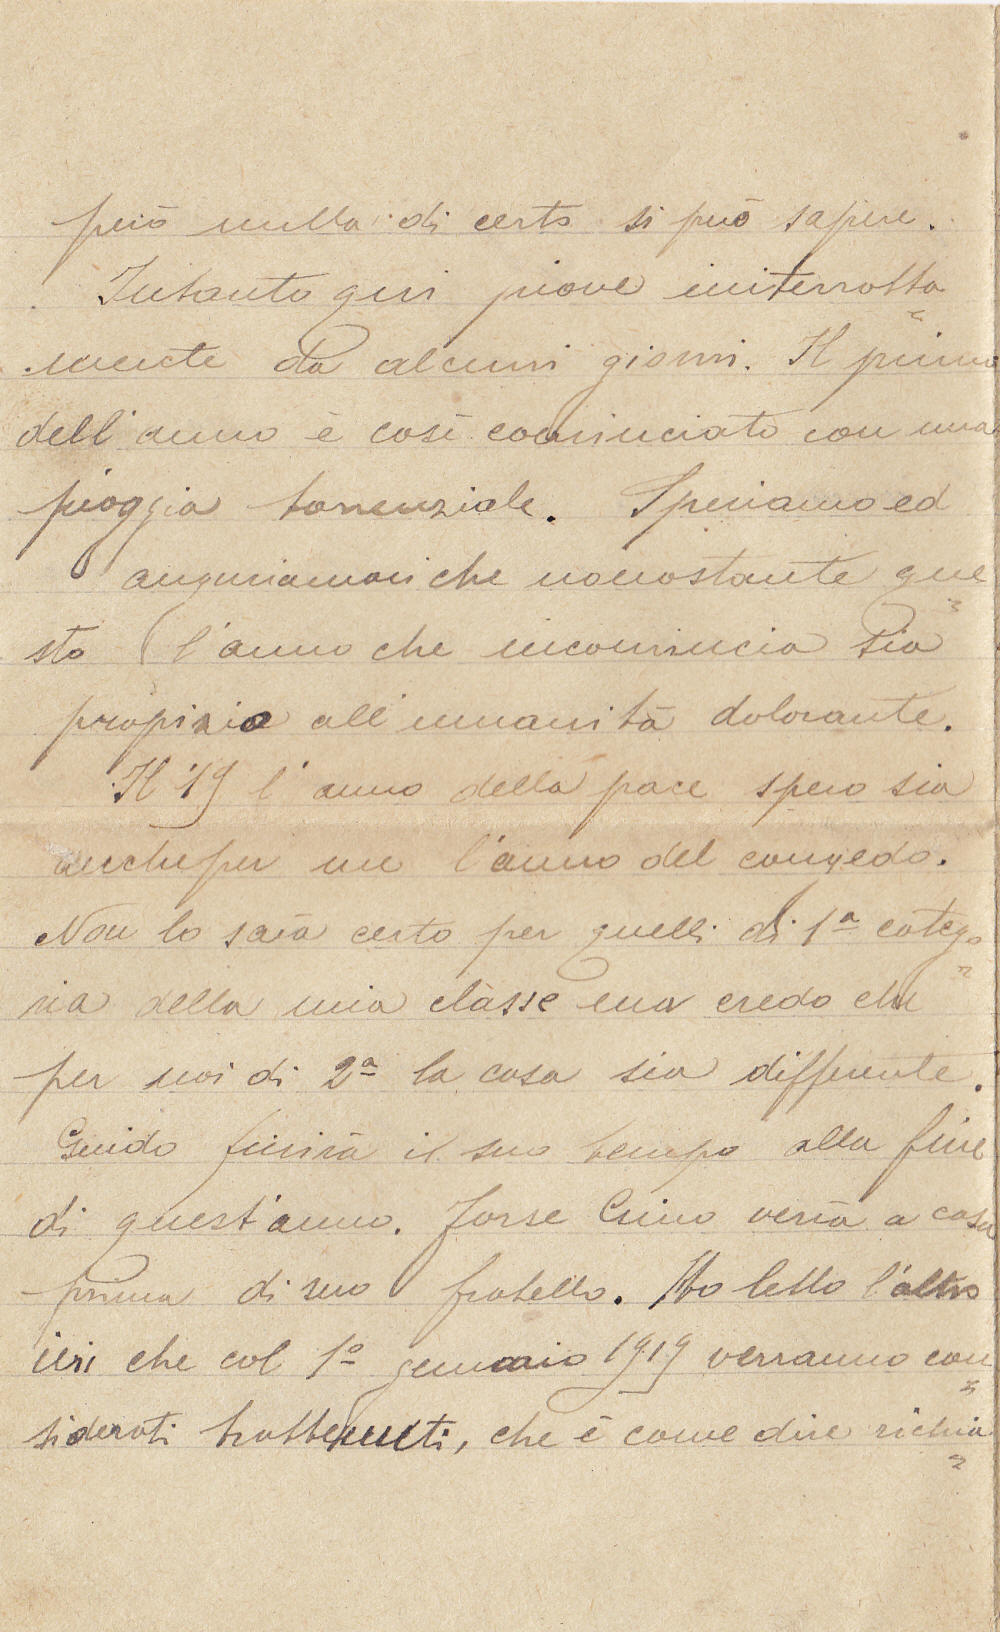 però nulla di certo si può sapere.
Intanto qui piove initerrotta
mente da alcuni giorni. Il primo
dell'anno è così cominciato con una
pioggia torrenziale. Speriamo ed
auguriamoci che nonostante que
sto l'anno che incomincia sia
propizio all'umanità dolorante.
Il '19 l'anno della pace spero sia
anche per me l'anno del congedo.
Non lo sarà certo per quelli di 1ª catego
ria della mia classe ma credo che
per noi di 2ª la cosa sia differente.
Guido finirà il suo tempo alla fine
di quest'anno. Forse Gino verrà a casa
prima di suo fratello. Ho letto l'altro
ieri che col 1º gennaio 1919 verranno con
siderati trattenuti, che è come dire richia